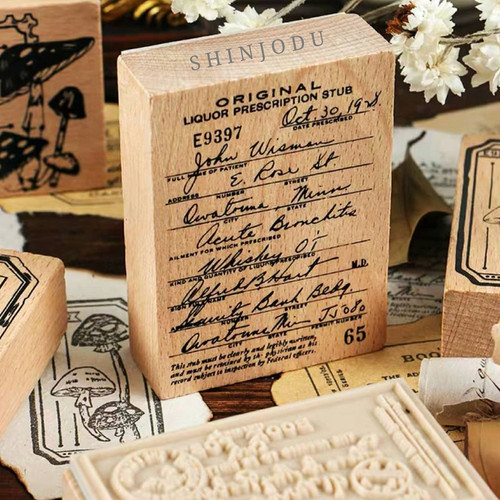 SHINJODU
ORIGINAL
LIQUOR PRESCRIPTION STUB
E9397
Oct. 30, 19-8.
DATE PRESCRIBED
John Wisman
FULL NAME OF PATIENT
E. Rose St.
ADDRESS NUMBER STREET
Owatonna, Minn.
CITY STATE
Acute Bronchitis
AILMENT FOR WHICH PRESCRIBED
Whiskey O
KIND AND QUANTITY OF LIQUOR PRESCRIBED
Hart M.D.
Security Bank Bldg.
NUMBER STREET
Owatonna Mn
CITY STATE PERMIT NUMBER
65
This stub must be clearly and legibly written
and be retained by the physician as his
record subject to inspection by Federal officers.
BOO